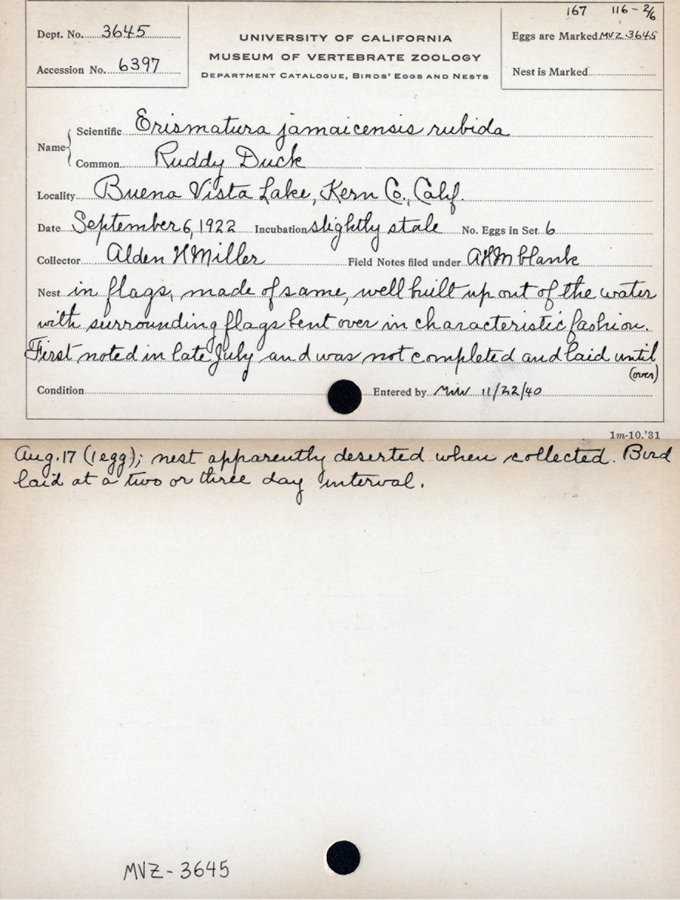 167 116-2/6
Dept. No. 3645
Accession No. 6397
UNIVERSITY OF CALIFORNIA
MUSEUM OF VERTEBRATE ZOOLOGY
DEPARTMENT CATALOGUE, BIRDS' EGGS AND NESTS
Eggs are Marked MVZ-3645
Nest is Marked
Name
Scientific Erismatura jamaicensis rubida
Common Ruddy Duck
Locality Buena Vista Lake, Kern Co., Calif.
Date September 6, 1922 Incubation slightly stale No. Eggs in Set 6
Collector Alden H Miller Field Notes filed under AHM blank
Nest in flags, made of same, well built up out of the water
with surrounding flags bent over in characteristic fashion.
First noted in late July and was not completed and laid until
(over)
Condition Entered by MW 11/22/40
1m-10,'31
Aug. 17 (1 egg); nest apparently deserted when collected. Bird
laid at a two or three day interval.
MVZ-3645